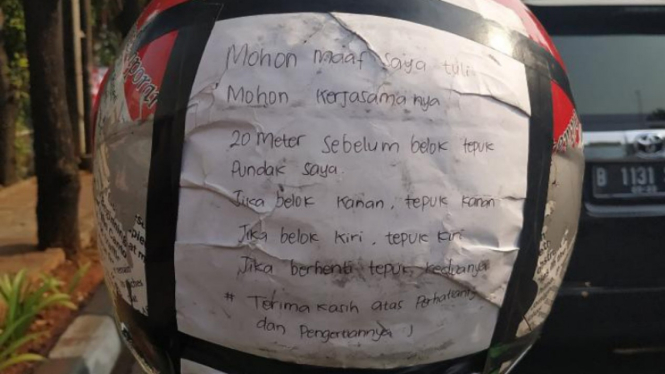 Mohon maaf saya tuli
Mohon kerjasama nya
20 Meter sebelum belok tepuk
Pundak saya
Jika belok kanan, tepuk kanan
Jika belok kiri, tepuk kiri
Jika berhenti tepuk keduanya
# Terima kasih atas Perhatiannya
dan Pengertiannya )
B 1131